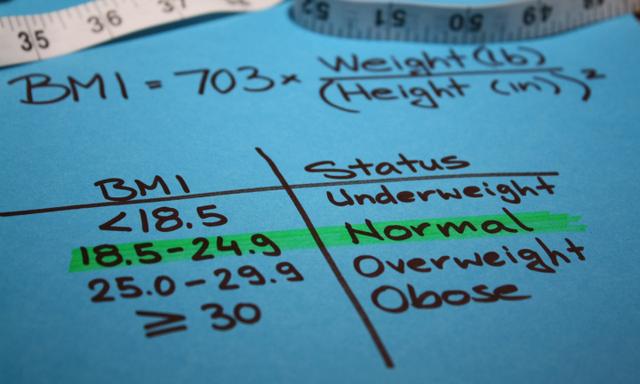 35 36 37 52 51 50 49 48
BMI = 703 × Weight (lb) / (Height (in))²
BMI Status
<18.5 Underweight
18.5-24.9 Normal
25.0-29.9 Overweight
≥ 30 Obose